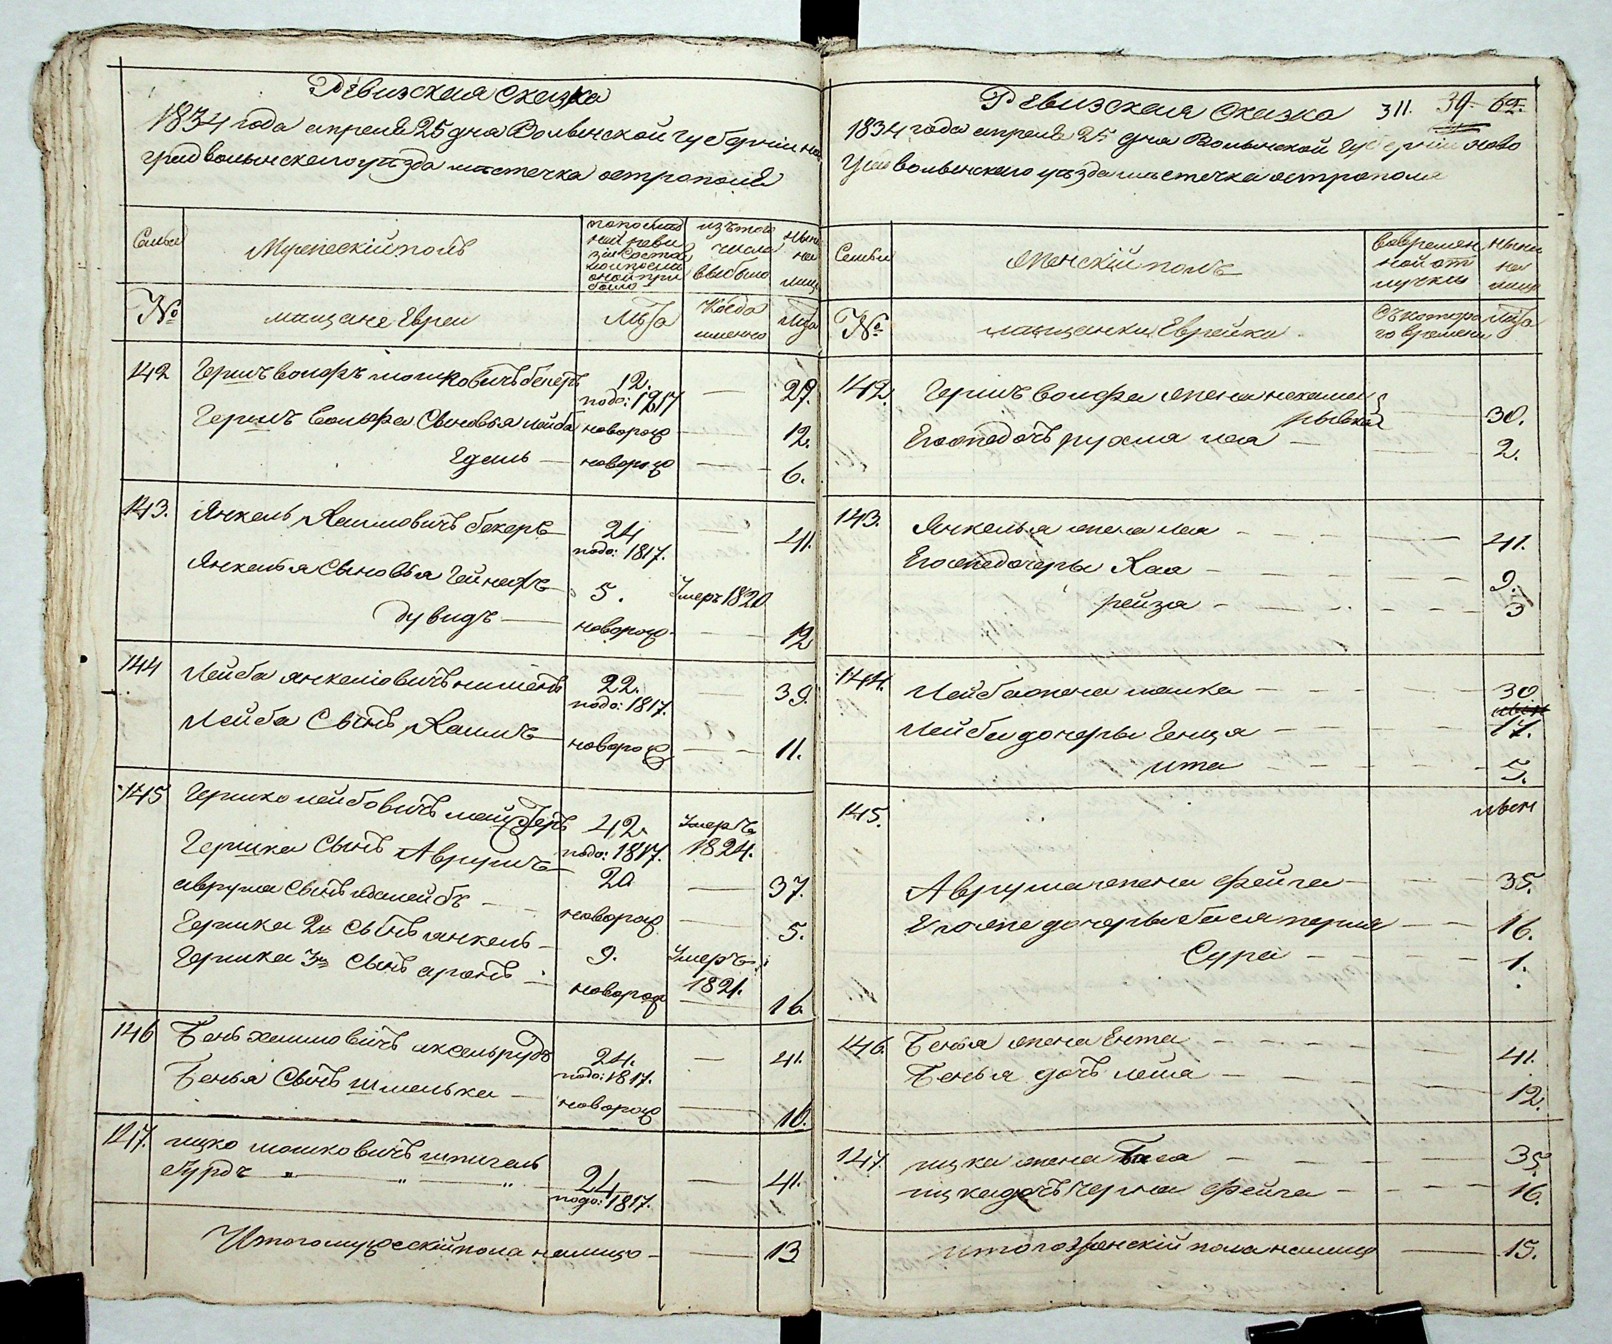 Ревизская сказка
1834 года апреля 25 дня Волынской губернии но
градволынского уѣзда мѣстечка острополя
Семьи
Мужескій полъ
по послѣд
ней реви
зіи состо
яло и послѣ
оной при
было
изъ того
числа
выбыло
ныне
на
лицо
№
мещане Евреи
Лѣта
Когда
именно
Лѣта
142
Гершъ вольфъ мошковичъ бекеръ
12.
подо: 1817
—
29.
Гершъ вольфа сыновья лейба
новорож
—
12.
Едель —
новорож
—
6.
143.
Янкель Хаимовичъ бекеръ —
24
подо: 1817.
—
41.
Янкеля сыновья
5.
Умеръ 1820
дувидъ —
новорож
—
12
144
Лейба янкелiовичъ
22.
подо: 1817.
—
39.
Лейба сынъ Хаимъ —
новорож
—
11.
145
Гершко лейбовичъ
42.
подо: 1817.
Умеръ
1824.
Гершка сынъ Аврумъ —
20
—
37.
аврума сынъ
новорож
—
5.
Гершка 2й сынъ янкель —
9.
Умеръ
1821.
Гершка 3й сынъ аронъ —
новорож
16
146
Бень хаимовичъ аксельрудъ
24.
подо: 1817.
—
41.
Бенья сынъ шмелька —
новорож
—
10.
147.
ицко мошковичъ шпигель
бурдъ " — " — " —
24
подо: 1817.
—
41.
Итого мужескій пола налицо —
—
13
Ревизская сказка 311. 39.
1834 года апреля 25 дня Волынской губерніи ново
градволынского уѣзда мѣстечка острополя
Семьи
Женскій полъ
Во времен
ной от
лучкѣ
ныне
на
лицо
№
мещанки Еврейки
Съ которо
го времени
Лѣта
142.
Гершъ вольфа жена нехама
рывка
—
30.
Его же дочь рухля лея —
—
2.
143.
Янкеля жена лея —
—
41.
Его же дочери Хая —
9.
рейза —
3
144.
Лейба жена малка —
30
Лейби дочери Генця —
17.
ита —
5.
145.
Аврума жена фейга —
35.
Его же дочери бася перля —
16.
Сура —
1.
146.
Бенья жена Ента —
41.
Бенья дочь леша —
12.
147.
ицка жена Бася —
35.
ицка дочь черна фейга —
16.
итого женскій пола налицо
—
15.